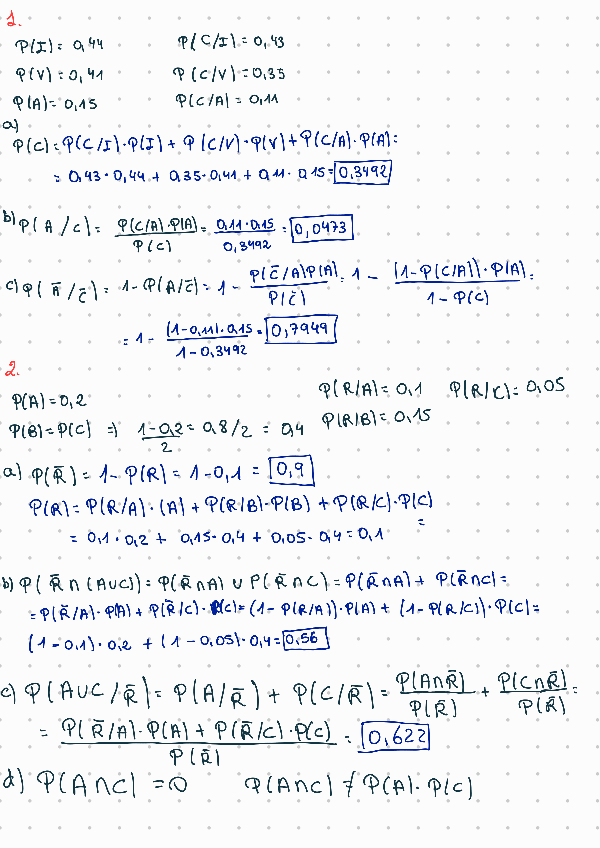 1.
P(I) = 0,44 P(C/I) = 0,43
P(V) = 0,41 P(C/V) = 0,35
P(A) = 0,15 P(C/A) = 0,11
a)
P(C) = P(C/I)·P(I) + P(C/V)·P(V) + P(C/A)·P(A) =
= 0,43·0,44 + 0,35·0,41 + 0,11·0,15 = 0,3492
b) P(A/C) = P(C/A)·P(A) / P(C) = 0,11·0,15 / 0,3492 = 0,0473
c) P(Ā/C̄) = 1 - P(A/C̄) = 1 - P(C̄/A)P(A) / P(C̄) = 1 - (1-P(C/A))·P(A) / 1 - P(C) =
= 1 - (1-0,11)·0,15 / 1 - 0,3492 = 0,7949
2.
P(A) = 0,2 P(R/A) = 0,1 P(R/C) = 0,05
P(B) = P(C) ⇒ 1-0,2 / 2 = 0,8/2 = 0,4 P(R/B) = 0,15
a) P(R̄) = 1 - P(R) = 1 - 0,1 = 0,9
P(R) = P(R/A)·(A) + P(R/B)·P(B) + P(R/C)·P(C) =
= 0,1·0,2 + 0,15·0,4 + 0,05·0,4 = 0,1
b) P(R̄∩(A∪C)) = P(R̄∩A) ∪ P(R̄∩C) = P(R̄∩A) + P(R̄∩C) =
= P(R̄/A)·P(A) + P(R̄/C)·P(C) = (1 - P(R/A))·P(A) + (1 - P(R/C))·P(C) =
(1 - 0,1)·0,2 + (1 - 0,05)·0,4 = 0,56
c) P(A∪C/R̄) = P(A/R̄) + P(C/R̄) = P(A∩R̄) / P(R̄) + P(C∩R̄) / P(R̄) =
= P(R̄/A)·P(A) + P(R̄/C)·P(C) / P(R̄) = 0,622
d) P(A∩C) = 0 P(A∩C) ≠ P(A)·P(C)